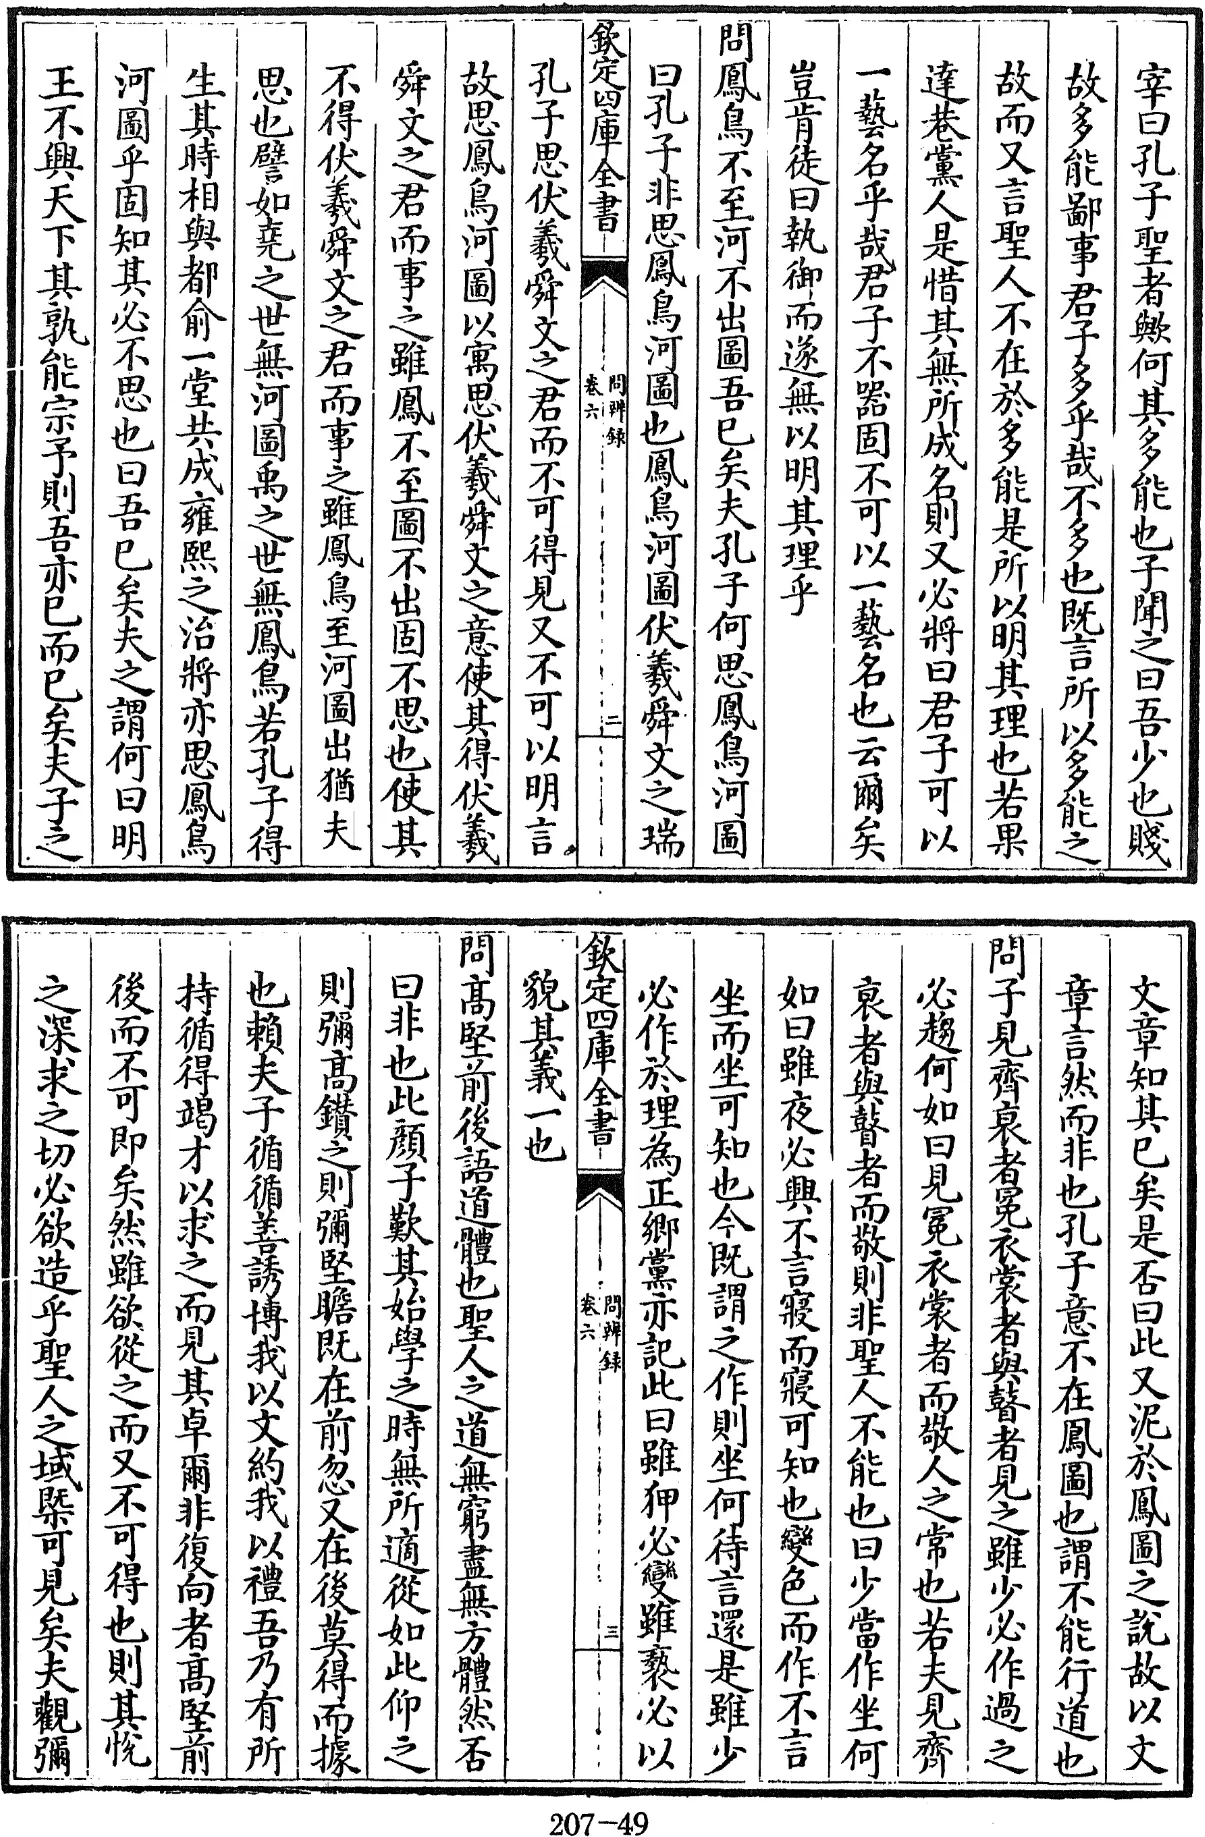 宰曰孔子聖者歟何其多能也子聞之曰吾少也賤
故多能鄙事君子多乎哉不多也既言所以多能之
故而又言聖人不在於多能是所以明其理也若果
達巷黨人是惜其無所成名則又必將曰君子可以
一藝名乎哉君子不器固不可以一藝名也云爾矣
豈肯徒曰執御而遂無以明其理乎
問鳳鳥不至河不出圖吾已矣夫孔子何思鳳鳥河圖
曰孔子非思鳳鳥河圖也鳳鳥河圖伏羲舜文之瑞
欽定四庫全書
問辨録
卷六
二
孔子思伏羲舜文之君而不可得見又不可以明言
故思鳳鳥河圖以寓思伏羲舜文之意使其得伏羲
舜文之君而事之雖鳳不至圖不出固不思也使其
不得伏羲舜文之君而事之雖鳳鳥至河圖出猶夫
思也譬如堯之世無河圖禹之世無鳳鳥若孔子得
生其時相與都俞一堂共成雍熙之治將亦思鳳鳥
河圖乎固知其必不思也曰吾已矣夫之謂何曰明
王不興天下其孰能宗予則吾亦已而已矣夫子之
文章知其已矣是否曰此又泥於鳳圖之說故以文
章言然而非也孔子意不在鳳圖也謂不能行道也
問子見齊衰者冕衣裳者與瞽者見之雖少必作過之
必趨何如曰見冕衣裳者而敬人之常也若夫見齊
衰者與瞽者而敬則非聖人不能也曰少當作坐何
如曰雖夜必興不言寢而寢可知也變色而作不言
坐而坐可知也今既謂之作則坐何待言還是雖少
必作於理為正鄉黨亦記此曰雖狎必變雖褻必以
欽定四庫全書
問辨録
卷六
三
貌其義一也
問高堅前後語道體也聖人之道無窮盡無方體然否
曰非也此顔子歎其始學之時無所適從如此仰之
則彌高鑽之則彌堅瞻既在前忽又在後莫得而據
也賴夫子循循善誘博我以文約我以禮吾乃有所
持循得竭才以求之而見其卓爾非復向者高堅前
後而不可即矣然雖欲從之而又不可得也則其悅
之深求之切必欲造乎聖人之域槩可見矣夫觀彌
207-49